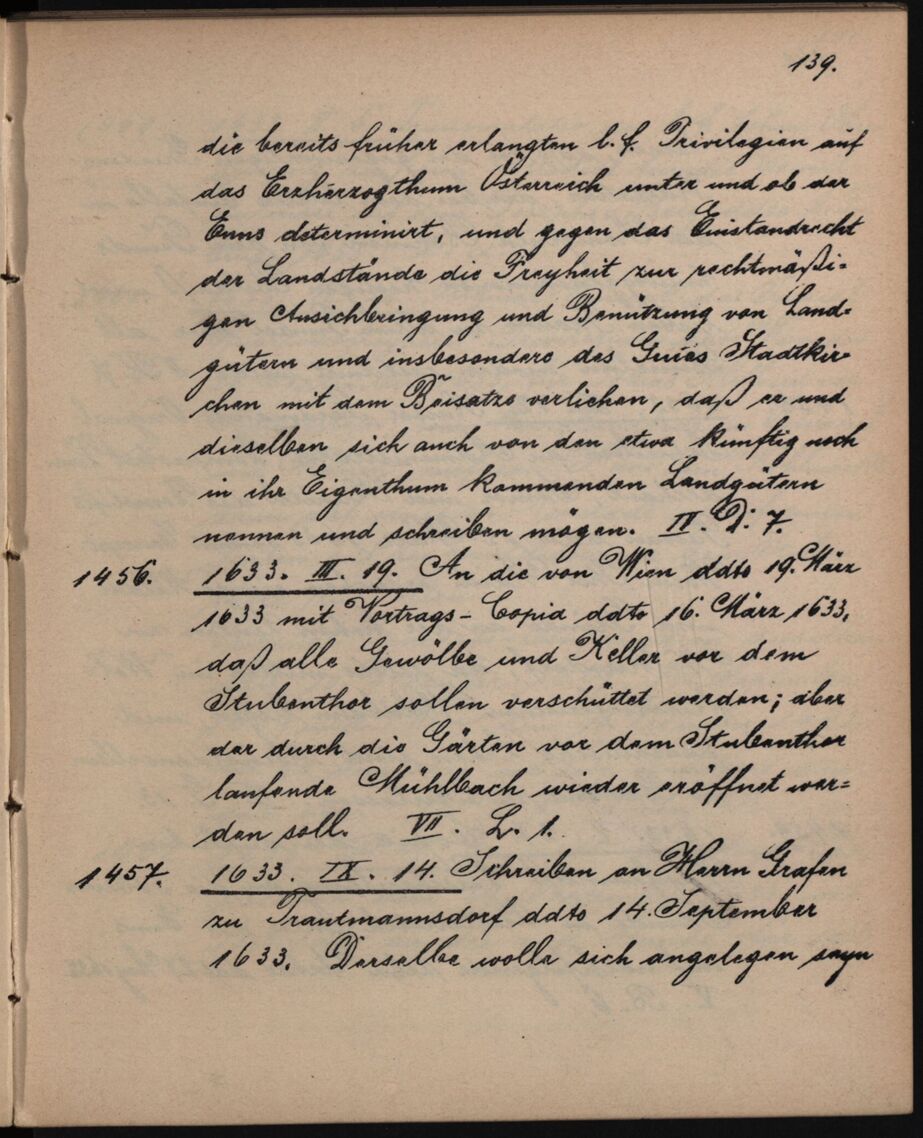 139.
die bereits früher erlangten l. f. Privilegien auf
das Erzherzogthum Österreich unter und ob der
Enns determinirt, und gegen das Einstandrecht
der Landstände die Freyheit zur rechtmäßi-
gen Ansichbringung und Benützung von Land-
gütern und insbesondere des Gutes Stadtkir-
chen mit dem Beisatze verliehen, daß er und
dieselben sich auch von den etwa künftig noch
in ihr Eigenthum kommenden Landgütern
nennen und schreiben mögen. IV. D. 7.
1456. 1633. III. 19. An die von Wien ddto 19. März
1633 mit Vortrags-Copia ddto 16. März 1633,
daß alle Gewölbe und Keller vor dem
Stubenthor sollen verschüttet werden; aber
der durch die Gärten vor dem Stubenthor
laufende Mühlbach wieder eröffnet wer-
den soll. VII. L. 1.
1457. 1633. IX. 14. Schreiben an Herrn Grafen
zu Trautmannsdorf ddto 14. September
1633. Derselbe wolle sich angelegen seyn